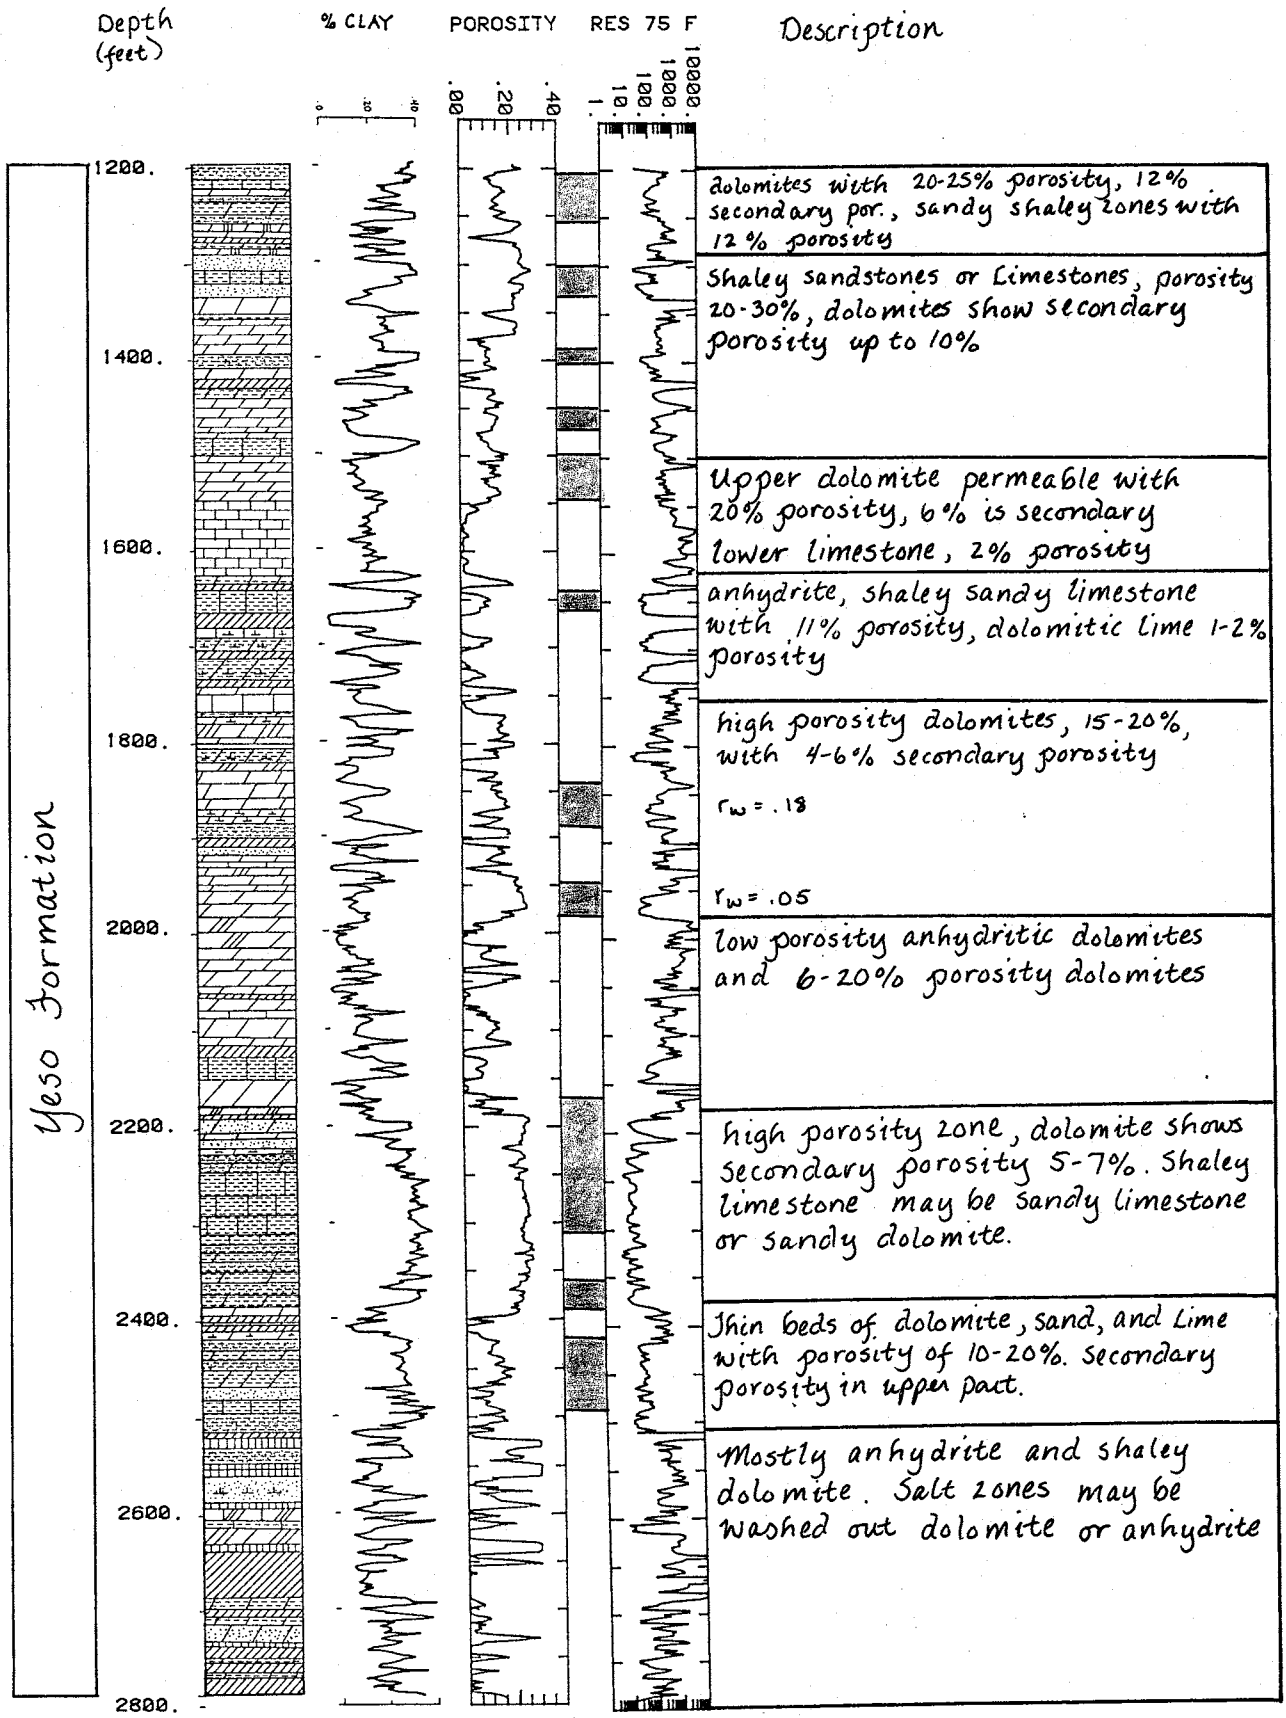 Depth
(feet)
% CLAY
POROSITY
RES 75 F
Description
.0
.20
.40
.00
.20
.40
1.
10.
100.
1000.
10000.
Yeso Formation
1200.
1400.
1600.
1800.
2000.
2200.
2400.
2600.
2800.
dolomites with 20-25% porosity, 12%
secondary por., sandy shaley zones with
12% porosity
Shaley sandstones or Limestones, porosity
20-30%, dolomites show secondary
porosity up to 10%
Upper dolomite permeable with
20% porosity, 6% is secondary
lower limestone, 2% porosity
anhydrite, shaley sandy limestone
with 11% porosity, dolomitic lime 1-2%
porosity
high porosity dolomites, 15-20%,
with 4-6% secondary porosity
rw = .18
rw = .05
low porosity anhydritic dolomites
and 6-20% porosity dolomites
high porosity zone, dolomite shows
secondary porosity 5-7%. Shaley
limestone may be sandy limestone
or sandy dolomite.
Thin beds of dolomite, sand, and Lime
with porosity of 10-20%. secondary
porosity in upper part.
Mostly anhydrite and shaley
dolomite. Salt zones may be
washed out dolomite or anhydrite